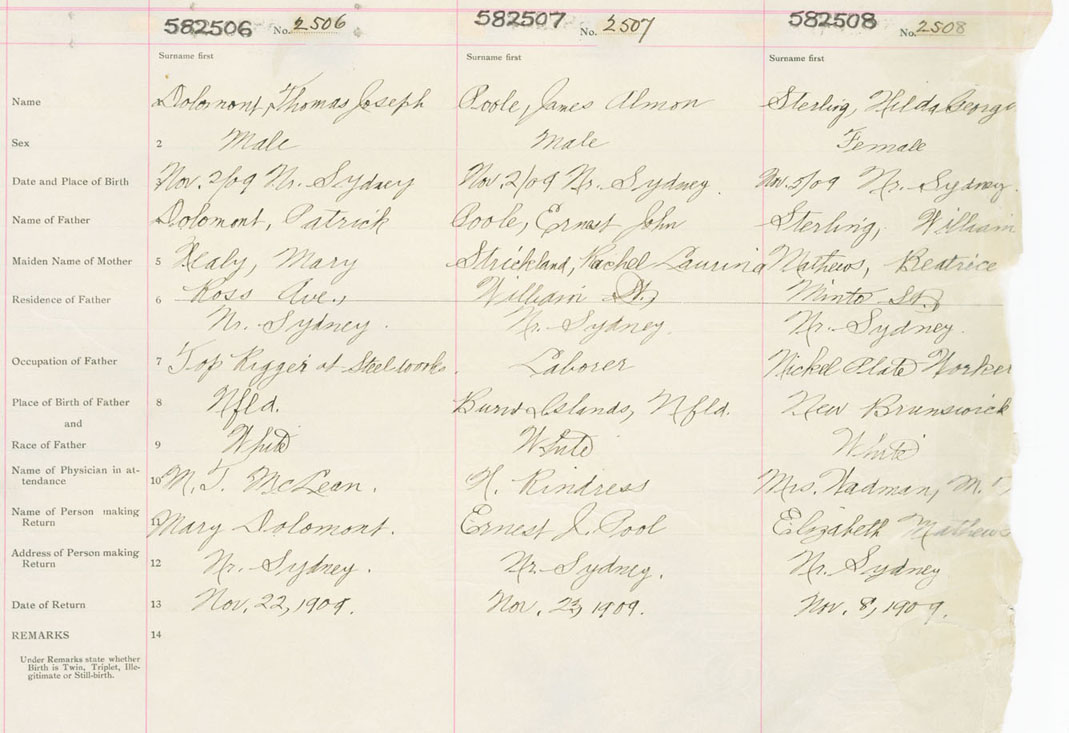 582506 No. 2506 582507 No. 2507 582508 No. 2508
Surname first Surname first Surname first
Name 1 Dolomont, Thomas Joseph Poole, James Almon Sterling, Hilda
Sex 2 Male Male Female
Date and Place of Birth Nov. 2/09 Nr. Sydney Nov. 2/09 Nr. Sydney. Nov. 5/09 Nr. Sydney.
Name of Father 4 Dolomont, Patrick Poole, Ernest John Sterling, William
Maiden Name of Mother 5 Healy, Mary Strickland, Rachel Laurina Mathews, Beatrice
Residence of Father 6 Ross Ave., William St., Minto St.,
Nr. Sydney. Nr. Sydney. Nr. Sydney.
Occupation of Father 7 Top Rigger at Steelworks. Laborer Nickel Plate Worker
Place of Birth of Father 8 Nfld. Islands, Nfld. New Brunswick
and
Race of Father 9 White White White
Name of Physician in at-
tendance 10 M. T. McLean. H. Rindress Mrs. Hadman, M.
Name of Person making
Return 11 Mary Dolomont. Ernest J. Pool Elizabeth Mathews
Address of Person making
Return 12 Nr. Sydney. Nr. Sydney. Nr. Sydney
Date of Return 13 Nov. 22, 1909. Nov. 23, 1909. Nov. 8, 1909.
REMARKS 14
Under Remarks state whether
Birth is Twin, Triplet, Ille-
gitimate or Still-birth.